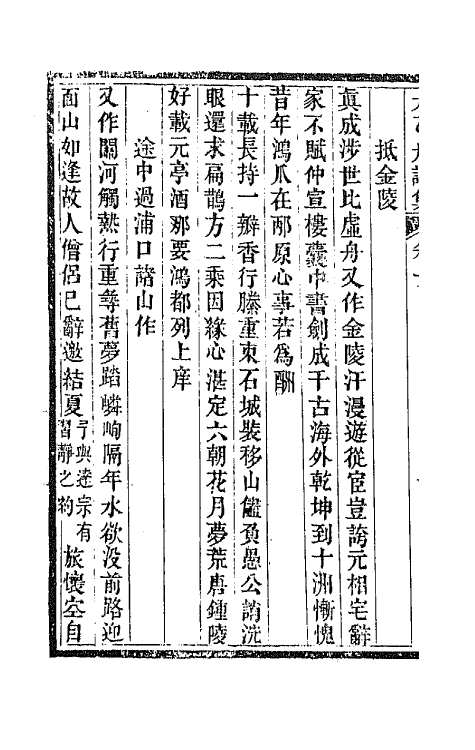 抵金陵
眞成涉世比虛舟又作金陵汗漫遊從宦豈誇元相宅辭
家不賦仲宣樓囊中書劍成千古海外乾坤到十洲慚愧
昔年鴻爪在那原心事若爲酬
十載長持一瓣香行縢重束石城裝移山儘負愚公誚洗
眼還求扁鵲方二乘因緣心湛定六朝花月夢荒唐鍾陵
好載元亭酒那要鴻都列上庠
途中過浦口諸山作
又作關河觸熱行重尋舊夢踏嶙峋隔年水欲没前路迎
面山如逢故人僧侶已辭邀結夏予與達宗有習靜之約旅懷空自